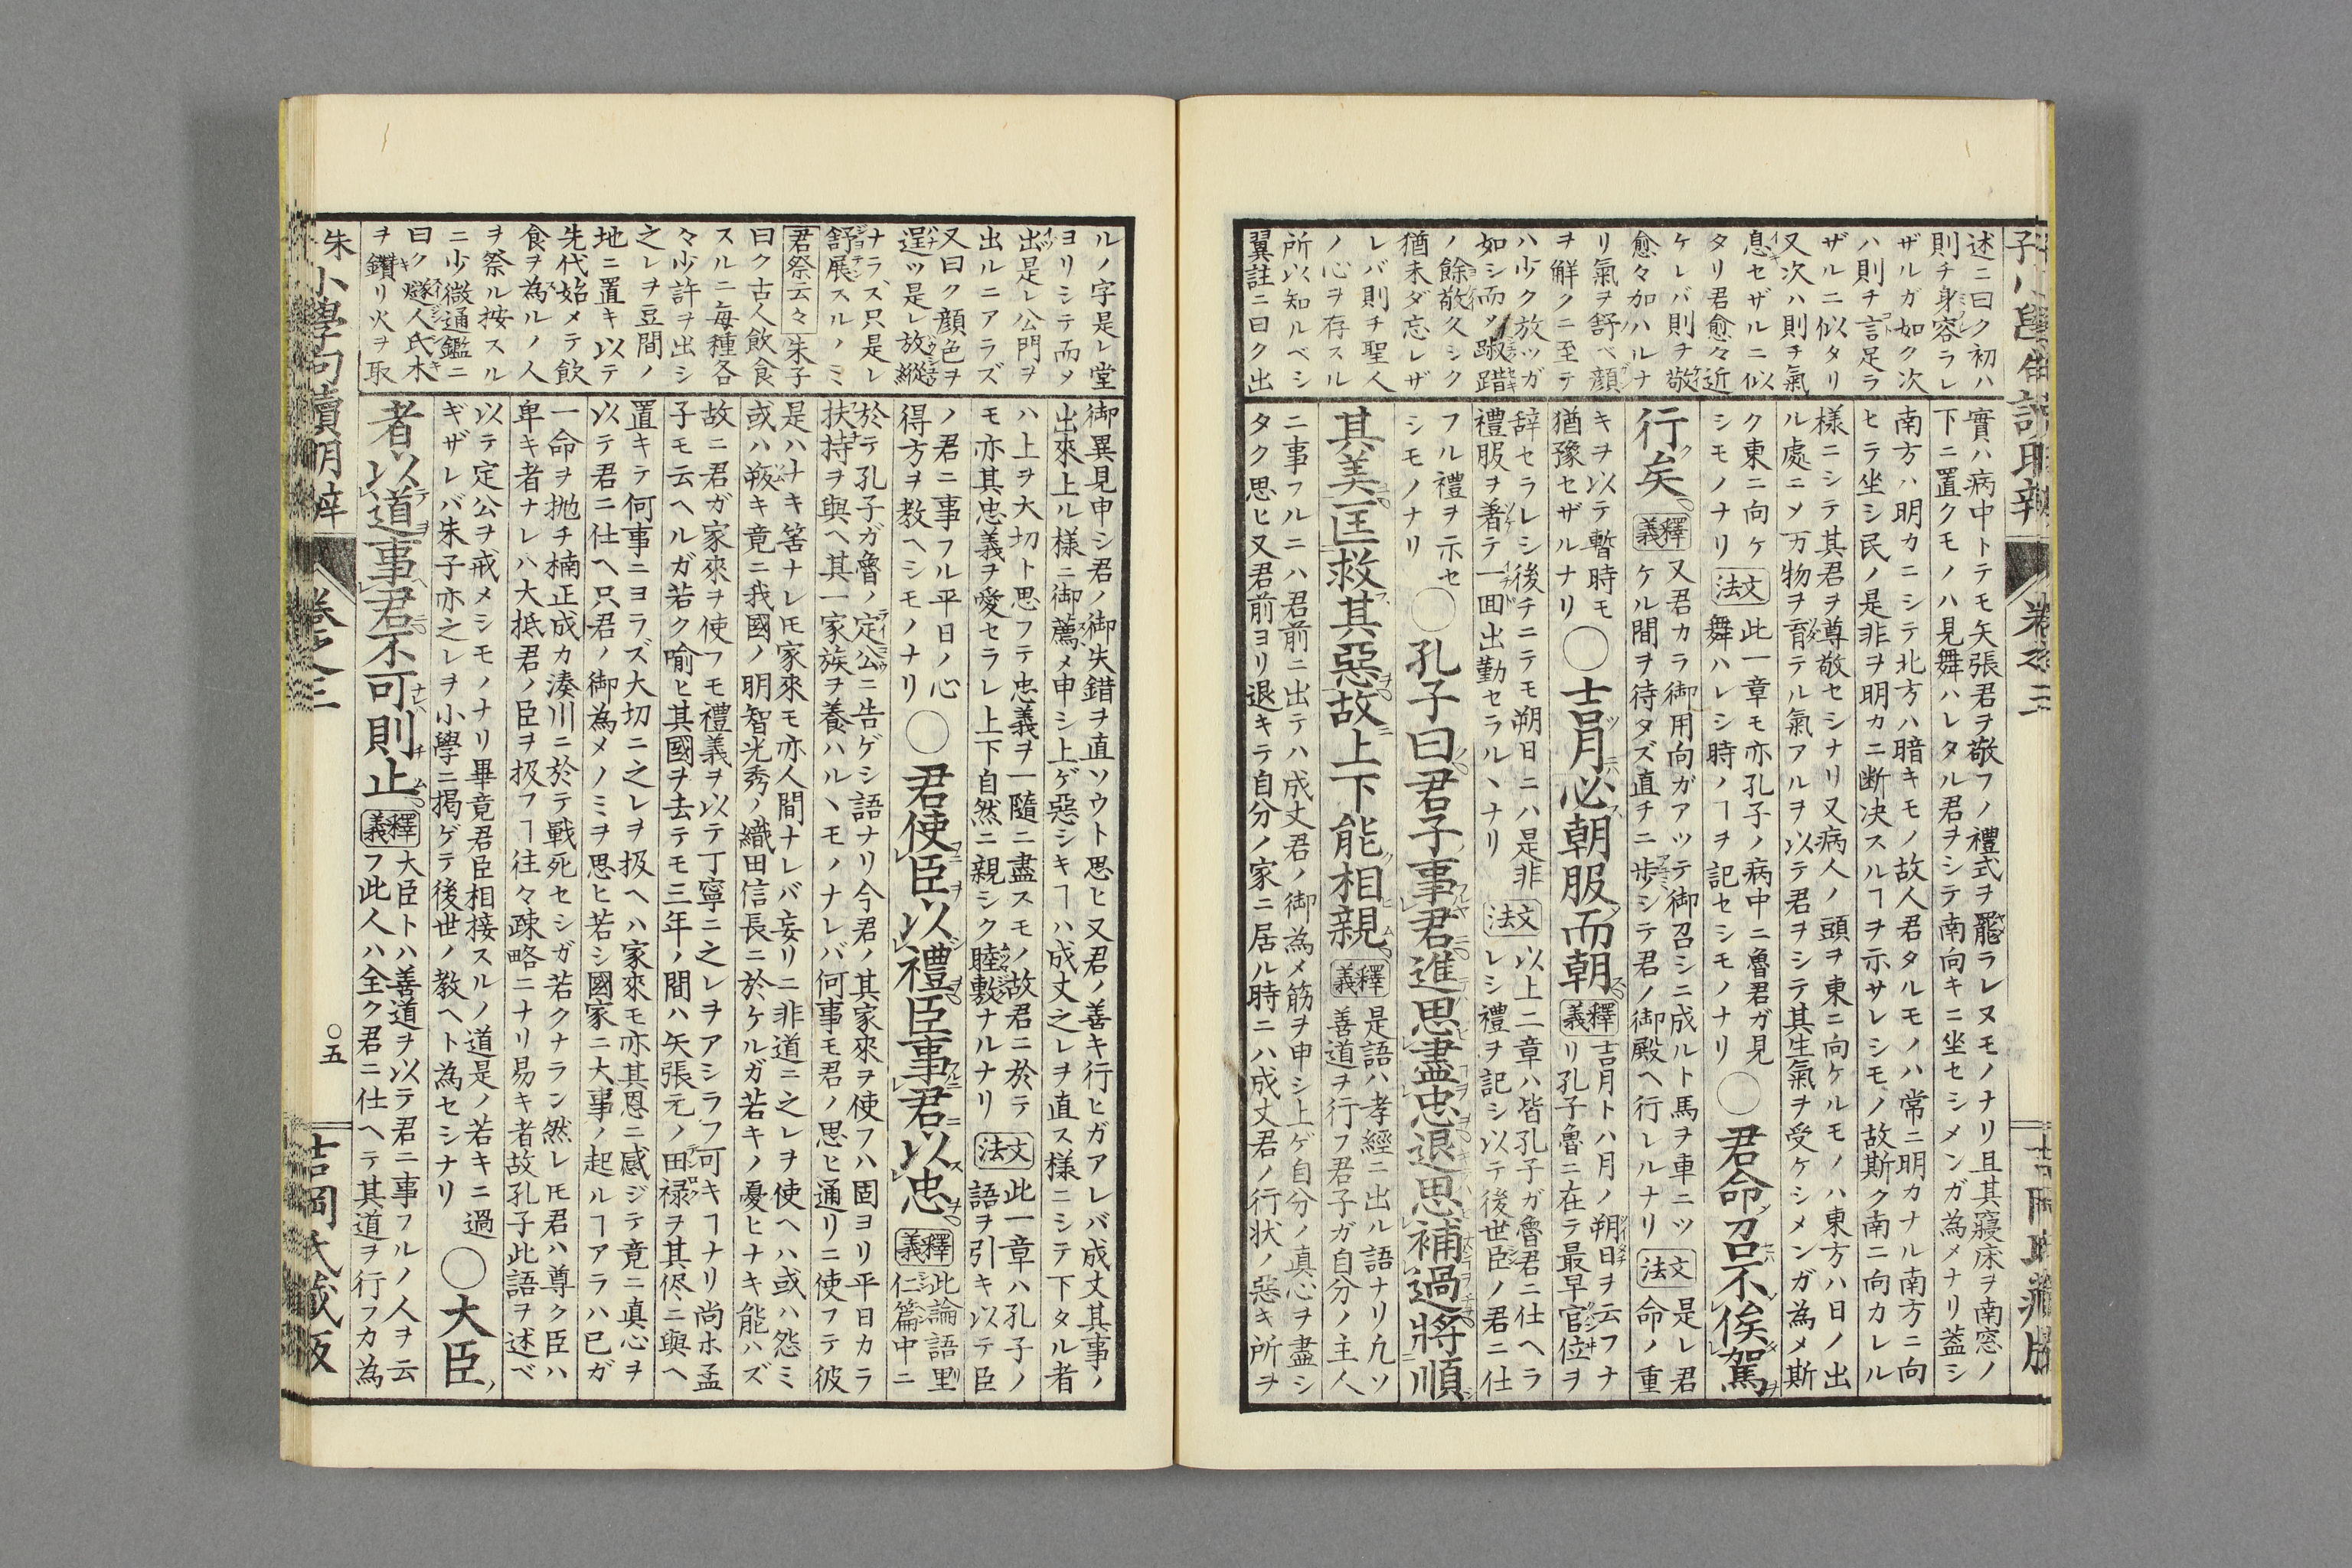 述ニ曰ク初ハ
則チ身容ラレ
ザルガ如ク次
ハ則チ言足ラ
ザルニ似タリ
又次ハ則チ氣
息セザルニ似
タリ君愈々近
ケレバ則チ敬
愈々加ハルナ
リ氣ヲ舒ベ顔
ヲ解クニ至テ
ハ少ク放ツガ
如シ而〆踧踖
ノ餘敬久シク
猶未ダ忘レザ
レバ則チ聖人
ノ心ヲ存スル
所以知ルベシ
翼註ニ曰ク出
實ハ病中トテモ矢張君ヲ敬フノ禮式ヲ罷ラレヌモノナリ且其寢床ヲ南窓ノ
下ニ置クモノハ見舞ハレタル君ヲシテ南向キニ坐セシメンガ為メナリ蓋シ
南方ハ明カニシテ北方ハ暗キモノ故人君タルモノハ常ニ明カナル南方ニ向
ヒテ坐シ民ノ是非ヲ明カニ断决スルヿヲ示サレシモノ故斯ク南ニ向カレル
様ニシテ其君ヲ尊敬セシナリ又病人ノ頭ヲ東ニ向ケルモノハ東方ハ日ノ出
ル處ニ〆万物ヲ育テル氣アルヲ以テ君ヲシテ其生氣ヲ受ケシメンガ為メ斯
ク東ニ向ケ 文法 此一章モ亦孔子ノ病中ニ魯君ガ見
シモノナリ 舞ハレシ時ノヿヲ記セシモノナリ ○君命召不俟駕
行矣 釋義 又君カラ御用向ガアツテ御召シニ成ルト馬ヲ車ニツ
ケル間ヲ待タズ直チニ歩シテ君ノ御殿ヘ行レルナリ 文法 是レ君
命ノ重
キヲ以テ暫時モ
猶豫セザルナリ ○吉月必朝服而朝 釋義 吉月トハ月ノ朔日ヲ云フナ
リ孔子魯ニ在テ最早官位ヲ
辞セラレシ後チニテモ朔日ニハ是非 文法 以上二章ハ皆孔子ガ魯君ニ仕ヘラ
禮服ヲ着テ一囬出勤セラルヽナリ レシ禮ヲ記シ以テ後世臣ノ君ニ仕
フル禮ヲ示セ
シモノナリ ○孔子曰君子事君進思盡忠退思補過將順
其美匡救其惡故上下能相親 釋義 是語ハ孝經ニ出ル語ナリ凢ソ
善道ヲ行フ君子ガ自分ノ主人
ニ事フルニハ君前ニ出テハ成丈君ノ御為メ筋ヲ申シ上ゲ自分ノ真心ヲ盡シ
タク思ヒ又君前ヨリ退キテ自分ノ家ニ居ル時ニハ成丈君ノ行状ノ惡キ所ヲ
ルノ字是レ堂
ヨリシテ而〆
出是レ公門ヲ
出ルニアラズ
又曰ク顔色ヲ
逞ツ是レ放縱
ナラズ只是レ
舒展スルノミ
君祭云々 朱子
曰ク古人飲食
スルニ毎種各
々少許ヲ出シ
之レヲ豆間ノ
地ニ置キ以テ
先代始メテ飲
食ヲ為ルノ人
ヲ祭ル按スル
ニ少微通鑑ニ
曰ク燧人氏木
ヲ鑽リ火ヲ取
御異見申シ君ノ御失錯ヲ直ソウト思ヒ又君ノ善キ行ヒガアレバ成丈其事ノ
出來上ル様ニ御薦メ申シ上ゲ惡シキヿハ成丈之レヲ直ス様ニシテ下タル者
ハ上ヲ大切ト思フテ忠義ヲ一隨ニ盡スモノ故君ニ於テ 文法 此一章ハ孔子ノ
モ亦其忠義ヲ愛セラレ上下自然ニ親シク睦敷ナルナリ 語ヲ引キ以テ臣
ノ君ニ事フル平日ノ心
得方ヲ教ヘシモノナリ ○君使臣以禮臣事君以忠 釋義 此論語里
仁篇中ニ
於テ孔子ガ魯ノ定公ニ告ゲシ語ナリ今君ノ其家來ヲ使フハ固ヨリ平日カラ
扶持ヲ與ヘ其一家族ヲ養ハルヽモノナレバ何事モ君ノ思ヒ通リニ使フテ彼
是ハナキ筈ナレ𪜈家來モ亦人間ナレバ妄リニ非道ニ之レヲ使ヘハ或ハ怨ミ
或ハ叛キ竟ニ我國ノ明智光秀ノ織田信長ニ於ケルガ若キノ憂ヒナキ能ハズ
故ニ君ガ家來ヲ使フモ禮義ヲ以テ丁寧ニ之レヲアシラフ可キヿナリ尚ホ孟
子モ云ヘルガ若ク喻ヒ其國ヲ去テモ三年ノ間ハ矢張元ノ田禄ヲ其侭ニ與ヘ
置キテ何事ニヨラズ大切ニ之レヲ扱ヘハ家來モ亦其恩ニ感ジテ竟ニ真心ヲ
以テ君ニ仕ヘ只君ノ御為メノミヲ思ヒ若シ國家ニ大事ノ起ルヿアラハ已ガ
一命ヲ抛チ楠正成カ湊川ニ於テ戰死セシガ若クナラン然レ𪜈君ハ尊ク臣ハ
卑キ者ナレハ大抵君ノ臣ヲ扱フヿ往々疎略ニナリ易キ者故孔子此語ヲ述ベ
以テ定公ヲ戒メシモノナリ畢竟君臣相接スルノ道是ノ若キニ過
ギザレバ朱子亦之レヲ小學ニ掲ゲテ後世ノ教ヘト為セシナリ ○大臣
者以道事君不可則止 釋義 大臣トハ善道ヲ以テ君ニ事フルノ人ヲ云
フ此人ハ全ク君ニ仕ヘテ其道ヲ行フカ為
朱子小學句讀明辨 卷之三 ○五 吉岡氏藏版